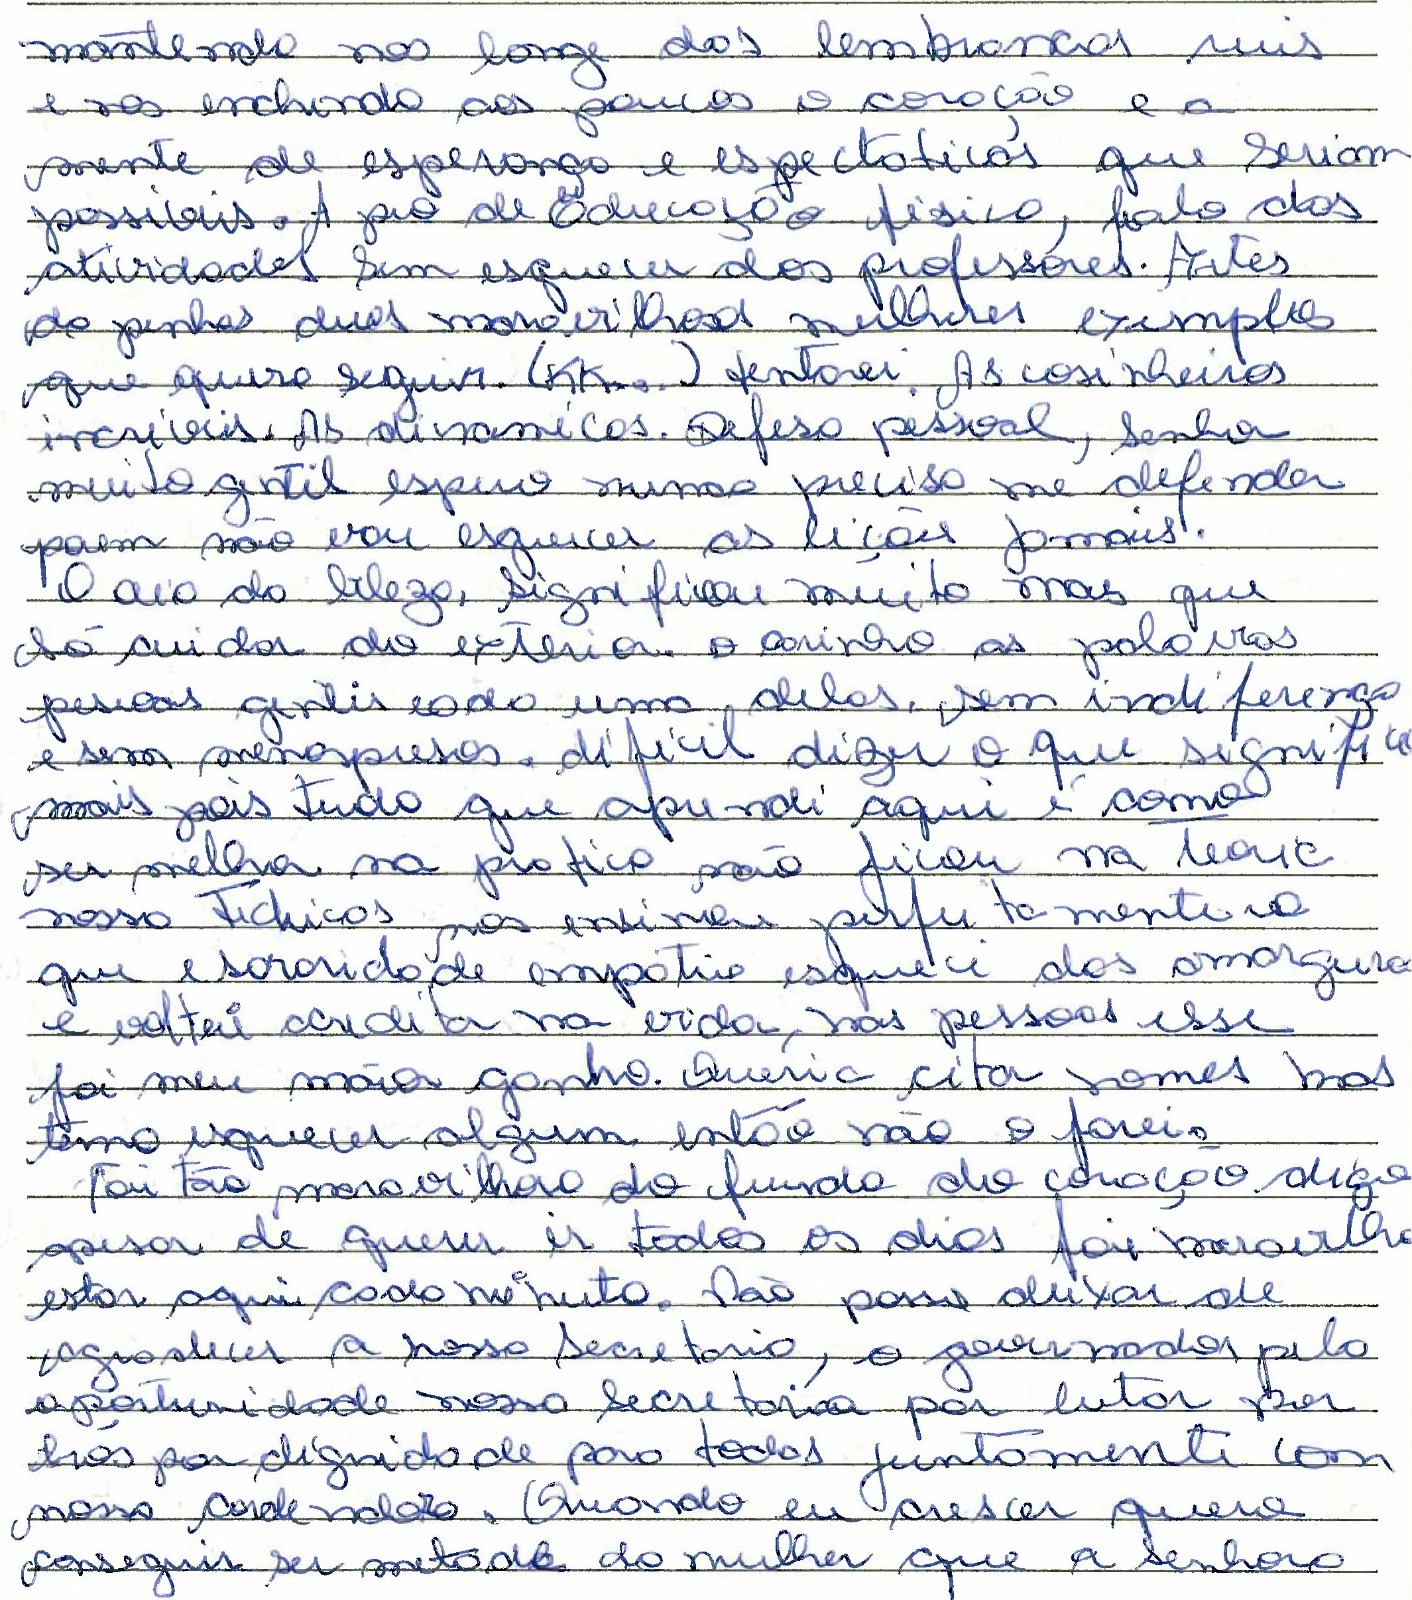 mantendo nos longe das lembranças ruis
e nos enchendo aos poucos o coração e a
mente de esperança e espectaticas que seriam
possiveis. A pro de Educação fisica, fala das
atividades sem esquecer dos professores. Artes
de penhas duas maravilhosas mulheres exemplos
que quero seguir. (KK...) tentarei. As cosinheiras
incriveis. As dinamicas. Defesa pessoal, Senhor
muito gentil espero nunca preciso me defender
porem não vou esquecer as lições jamais.
O dia da beleza, significou muito mas que
só cuidar do exterior. o carinho as palavras
pessoas gentis cada uma delas, sem indiferença
e sem menospreso. dificil dizer o que signific
mais pois tudo que aprendi aqui é como
ser melhor na pratica não ficou na teoric
nosso Technicos nos ensinou perfeitamente o
que e sororidade empatia esqueci das amargura
e voltei acredita na vida, nas pessoas esse
foi meu maior ganho. Queria citar nomes mas
temo esquecer algum então não o farei.
Foi tão maravilhoso do fundo do coração digo
apesar de querer ir todos os dias foi maravilho
estar aqui cada minuto. Não posso deixar de
agradecer a nossa Secretaria, o governador pela
oportunidade nossa secretaria por lutar por
nós por dignidade para todas juntamente com
nossa cordenadora. (Quando eu crescer quero
conseguir ser metade da mulher que a senhora